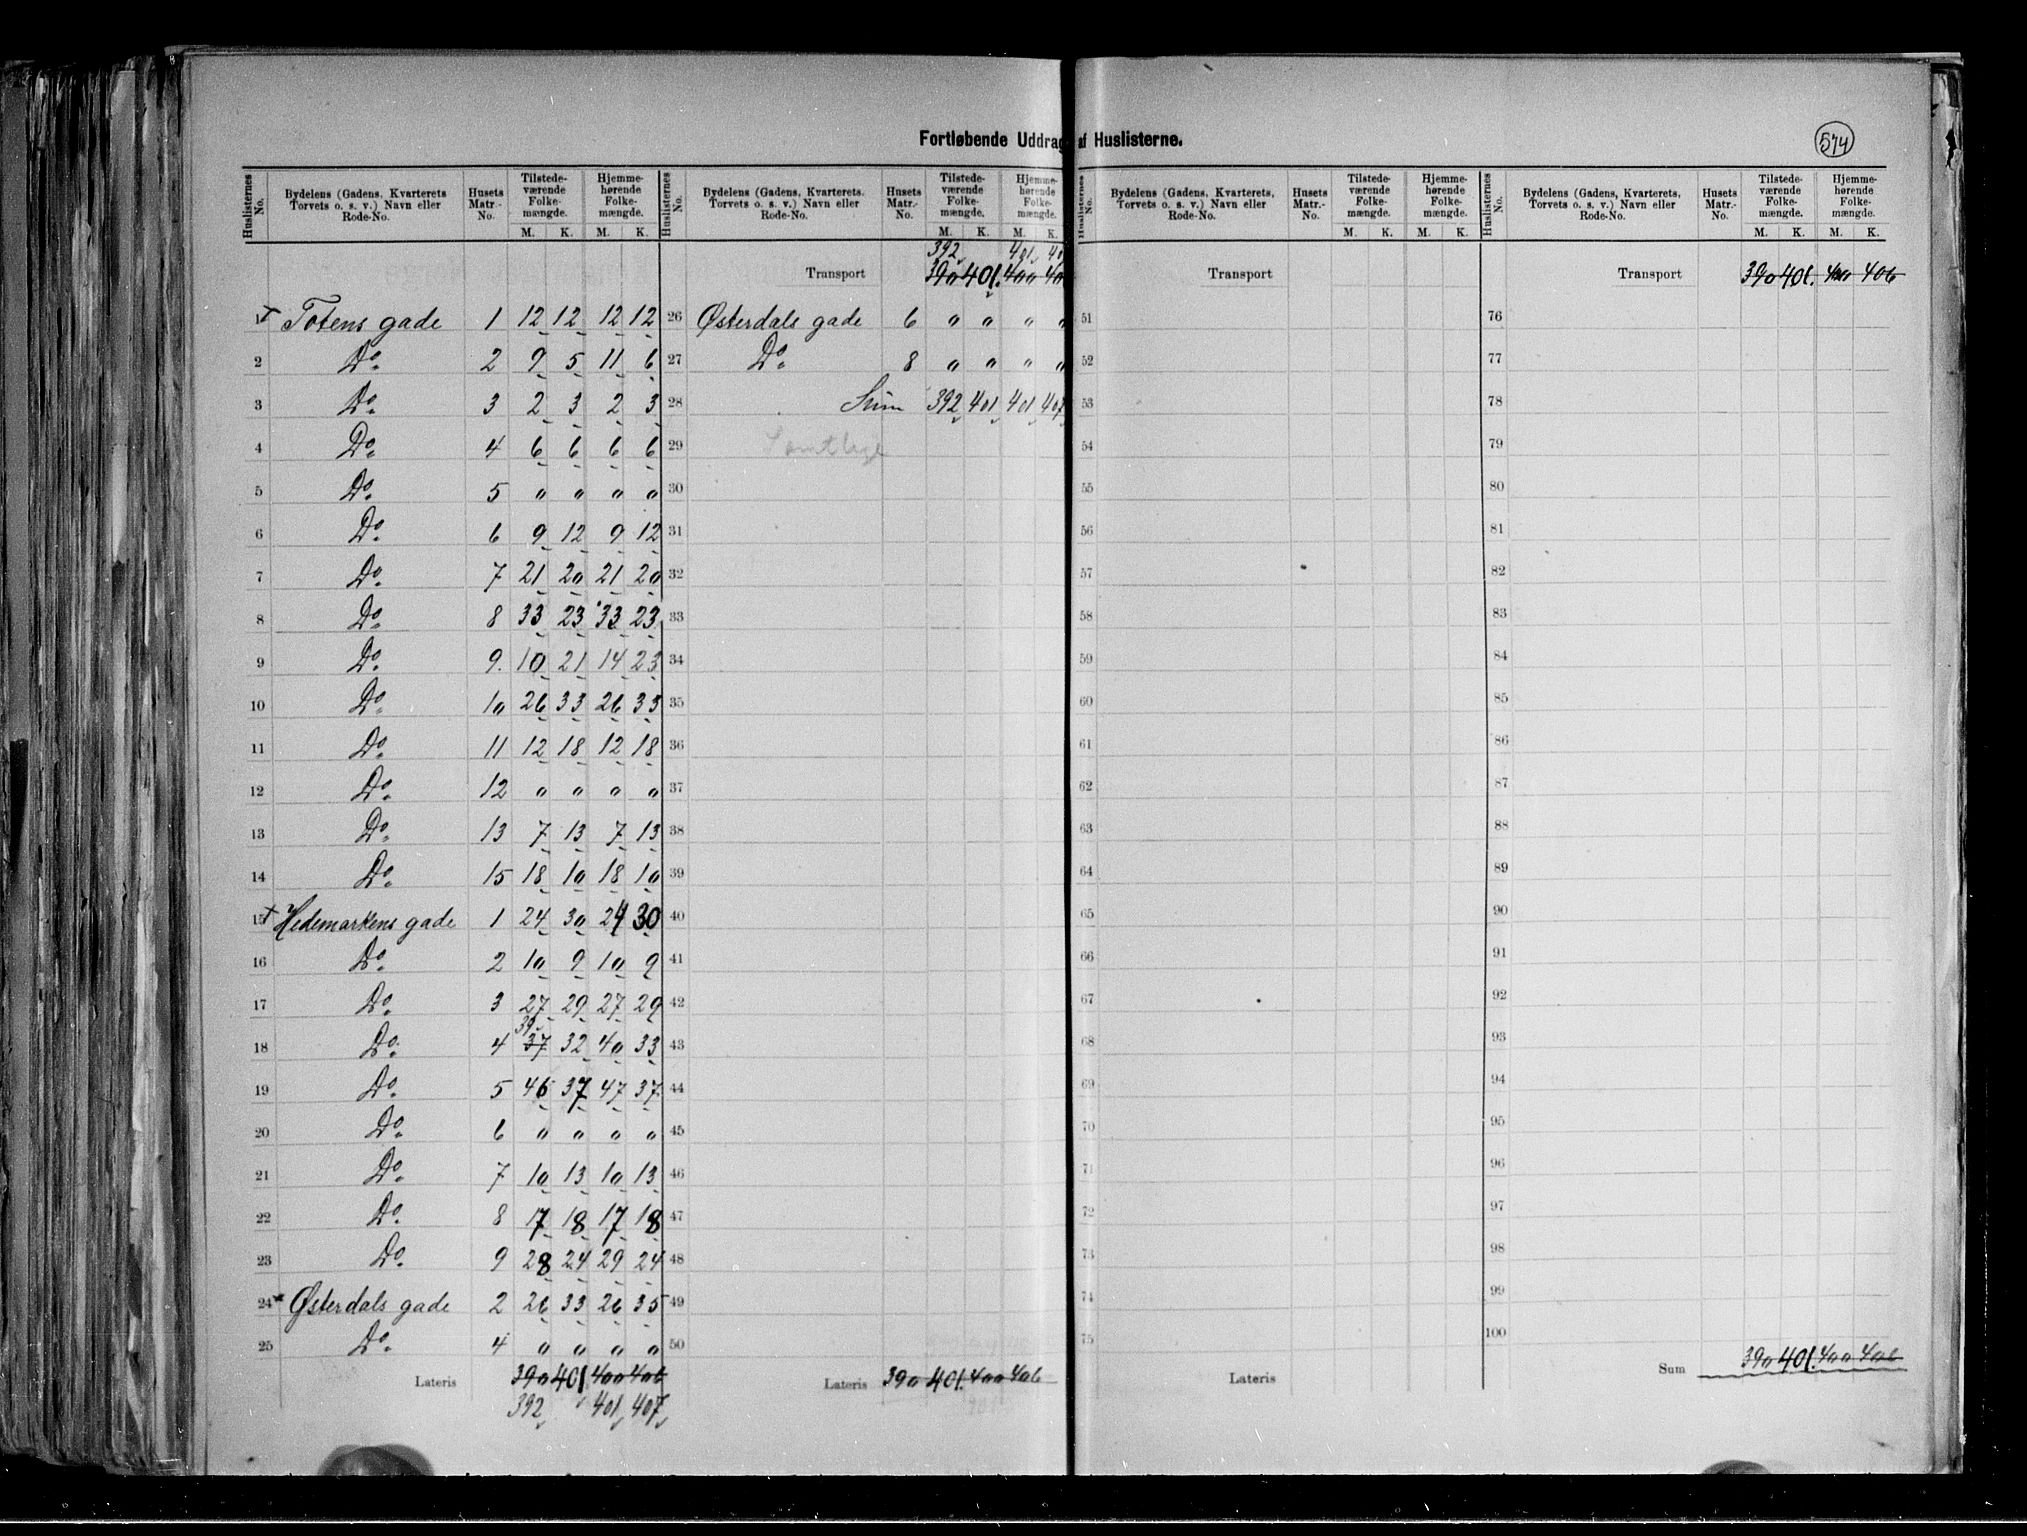 Fortløbende Uddrag af Huslisterne.
574
Huslisternes No. | Bydelens (Gadens, Kvarterets Torvets o. s. v.) Navn eller Rode-No. | Husets Matr.-No. | Tilstede-værende Folke-mængde. M. K. | Hjemme-hørende Folke-mængde. M. K.
1 Totens gade 1 12 12 12 12
2 Do. 2 9 5 11 6
3 Do. 3 2 3 2 3
4 Do. 4 6 6 6 6
5 Do. 5 " " " "
6 Do. 6 9 12 9 12
7 Do. 7 21 20 21 20
8 Do. 8 33 23 33 23
9 Do. 9. 10 21 14 23
10 Do. 10 26 33 26 33
11 Do. 11 12 18 12 18
12 Do. 12 " " " "
13 Do. 13 7 13 7 13
14 Do. 15 18 10 18 10
15 Hedemarkens gade 1 24 30 24 30
16 Do. 2 10 9 10 9
17 Do. 3 27 29 27 29
39
18 Do. 4 37 32 40 33
19 Do. 5 46 37 47 37
20 Do. 6 " " " "
21 Do. 7 10 13 10 13
22 Do. 8 17 18 17 18
23 Do. 9 28 24 29 24
24 Østerdals gade 2 26 33 26 35
25 Do. 4 " " " "
Lateris 390 401 400 406
392 401 407
Huslisternes No. | Bydelens (Gadens, Kvarterets. Torvets o. s. v.) Navn eller Rode-No. | Husets Matr.-No. | Tilstede-værende Folke-mængde. M. K. | Hjemme-hørende Folke-mængde. M. K.
392 401 40
Transport 390 401. 400 40
26 Østerdals gade 6 " " " "
27 Do. 8 " " " "
28 Sum 392 401 401 407
29 Samtlige
30
31
32
33
34
35
36
37
38
39
40
41
42
43
44
45
46
47
48
49
50
Lateris 390 401. 400 406
Huslisternes No. | Bydelens (Gadens, Kvarterets Torvets o. s. v.) Navn eller Rode-No. | Husets Matr.-No. | Tilstede-værende Folke-mængde. M. K. | Hjemme-hørende Folke-mængde. M. K.
Transport
51
52
53
54
55
56
57
58
59
60
61
62
63
64
65
66
67
68
69
70
71
72
73
74
75
Lateris
Huslisternes No. | Bydelens (Gadens, Kvarterets Torvets o. s. v.) Navn eller Rode-No. | Husets Matr.-No. | Tilstede-værende Folke-mængde. M. K. | Hjemme-hørende Folke-mængde. M. K.
Transport 390 401. 400 406
76
77
78
79
80
81
82
83
84
85
86
87
88
89
90
91
92
93
94
95
96
97
98
99
100
Sum 390 401. 400 406